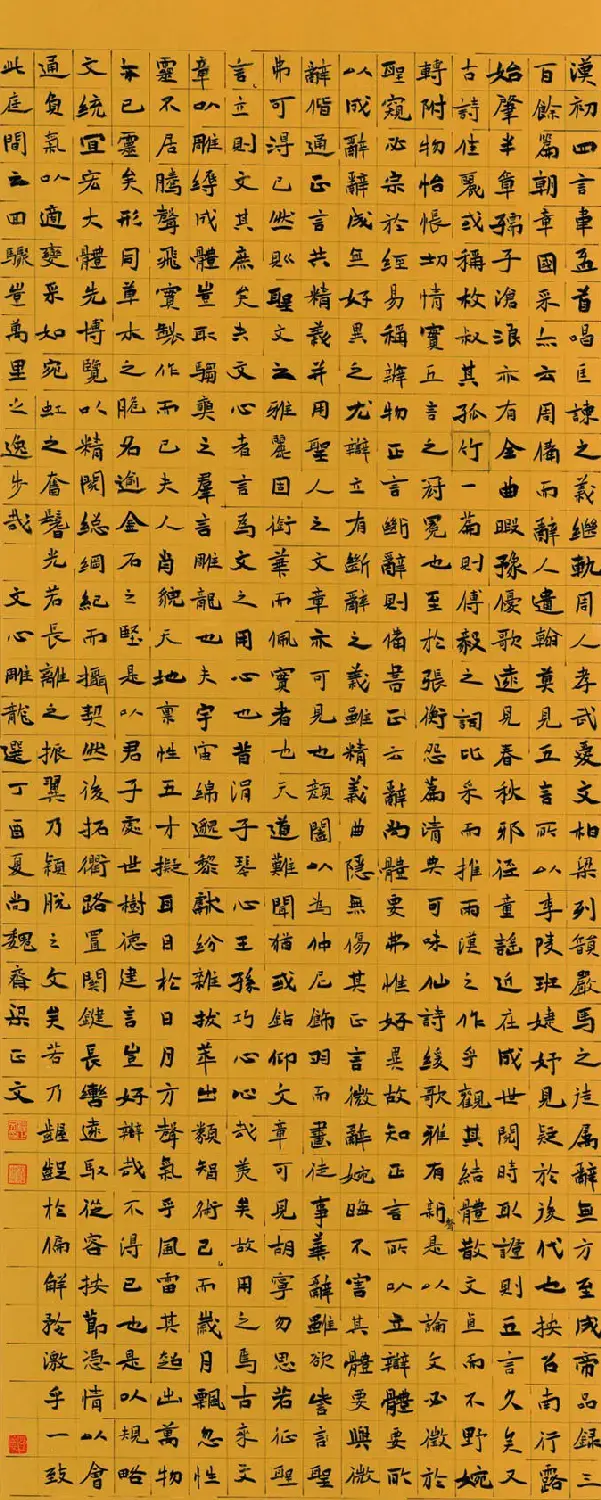 漢初四言韋孟首唱匡諫之義繼軌周人孝武愛文柏梁列韻嚴馬之徒属辭無方至成帝品録三
百餘篇朝章國采亦云周備而辭人遺翰莫見五言所以李陵班婕妤見疑於後代也按召南行露
始肇半章孺子滄浪亦有全曲暇豫優歌遠見春秋邪徑童謡近在成世閲時取證則五言久矣又
古詩佳麗或稱枚叔其孤竹一篇則傅毅之詞比采而推兩漢之作乎觀其結體散文直而不野婉
轉附物怊悵切情實五言之冠冕也至於張衡怨篇清典可味仙詩緩歌雅有新聲是以論文必徵於
聖窺必宗於經易稱辨物正言斷辭則備書正云辭尚體要弗惟好異故知正言所以立辯體要所
以成辭辭成無好異之尤辯立有斷辭之義雖精義曲隱無傷其正言微辭婉晦不害其體要與微
辭偕通正言共精義并用聖人之文章亦可見也顔闔以為仲尼飾羽而畫徒事華辭雖欲訾言聖
弗可得已然則聖文之雅麗固銜華而佩實者也天道難聞猶或鉆仰文章可見胡寧勿思若征聖
言立則文其庶矣夫文心者言為文之用心也昔涓子琴心王孫巧心心哉美矣故用之焉古來文
章以雕縟成體豈取騶奭之羣言雕龍也夫宇宙綿邈黎獻紛雜拔萃出類智術已而歲月飄忽性
靈不居騰聲飛實製作而已夫人肖貌天地稟性五才擬耳目於日月方聲氣乎風雷其超出萬物
亦已靈矣形同草木之脆名逾金石之堅是以君子處世樹德建言豈好辯哉不得已也是以規略
文統宜宏大體先博覽以精閱總綱紀而攝契然後拓衢路置關鍵長轡遠馭從容按節憑情以會
通負氣以適變采如宛虹之奮鬐光若長離之振翼乃穎脱之文矣若乃齷齪於偏解矜激乎一致
此庭間之回驟豈萬里之逸步哉 文心雕龍選丁酉夏尚魏齋梁正文